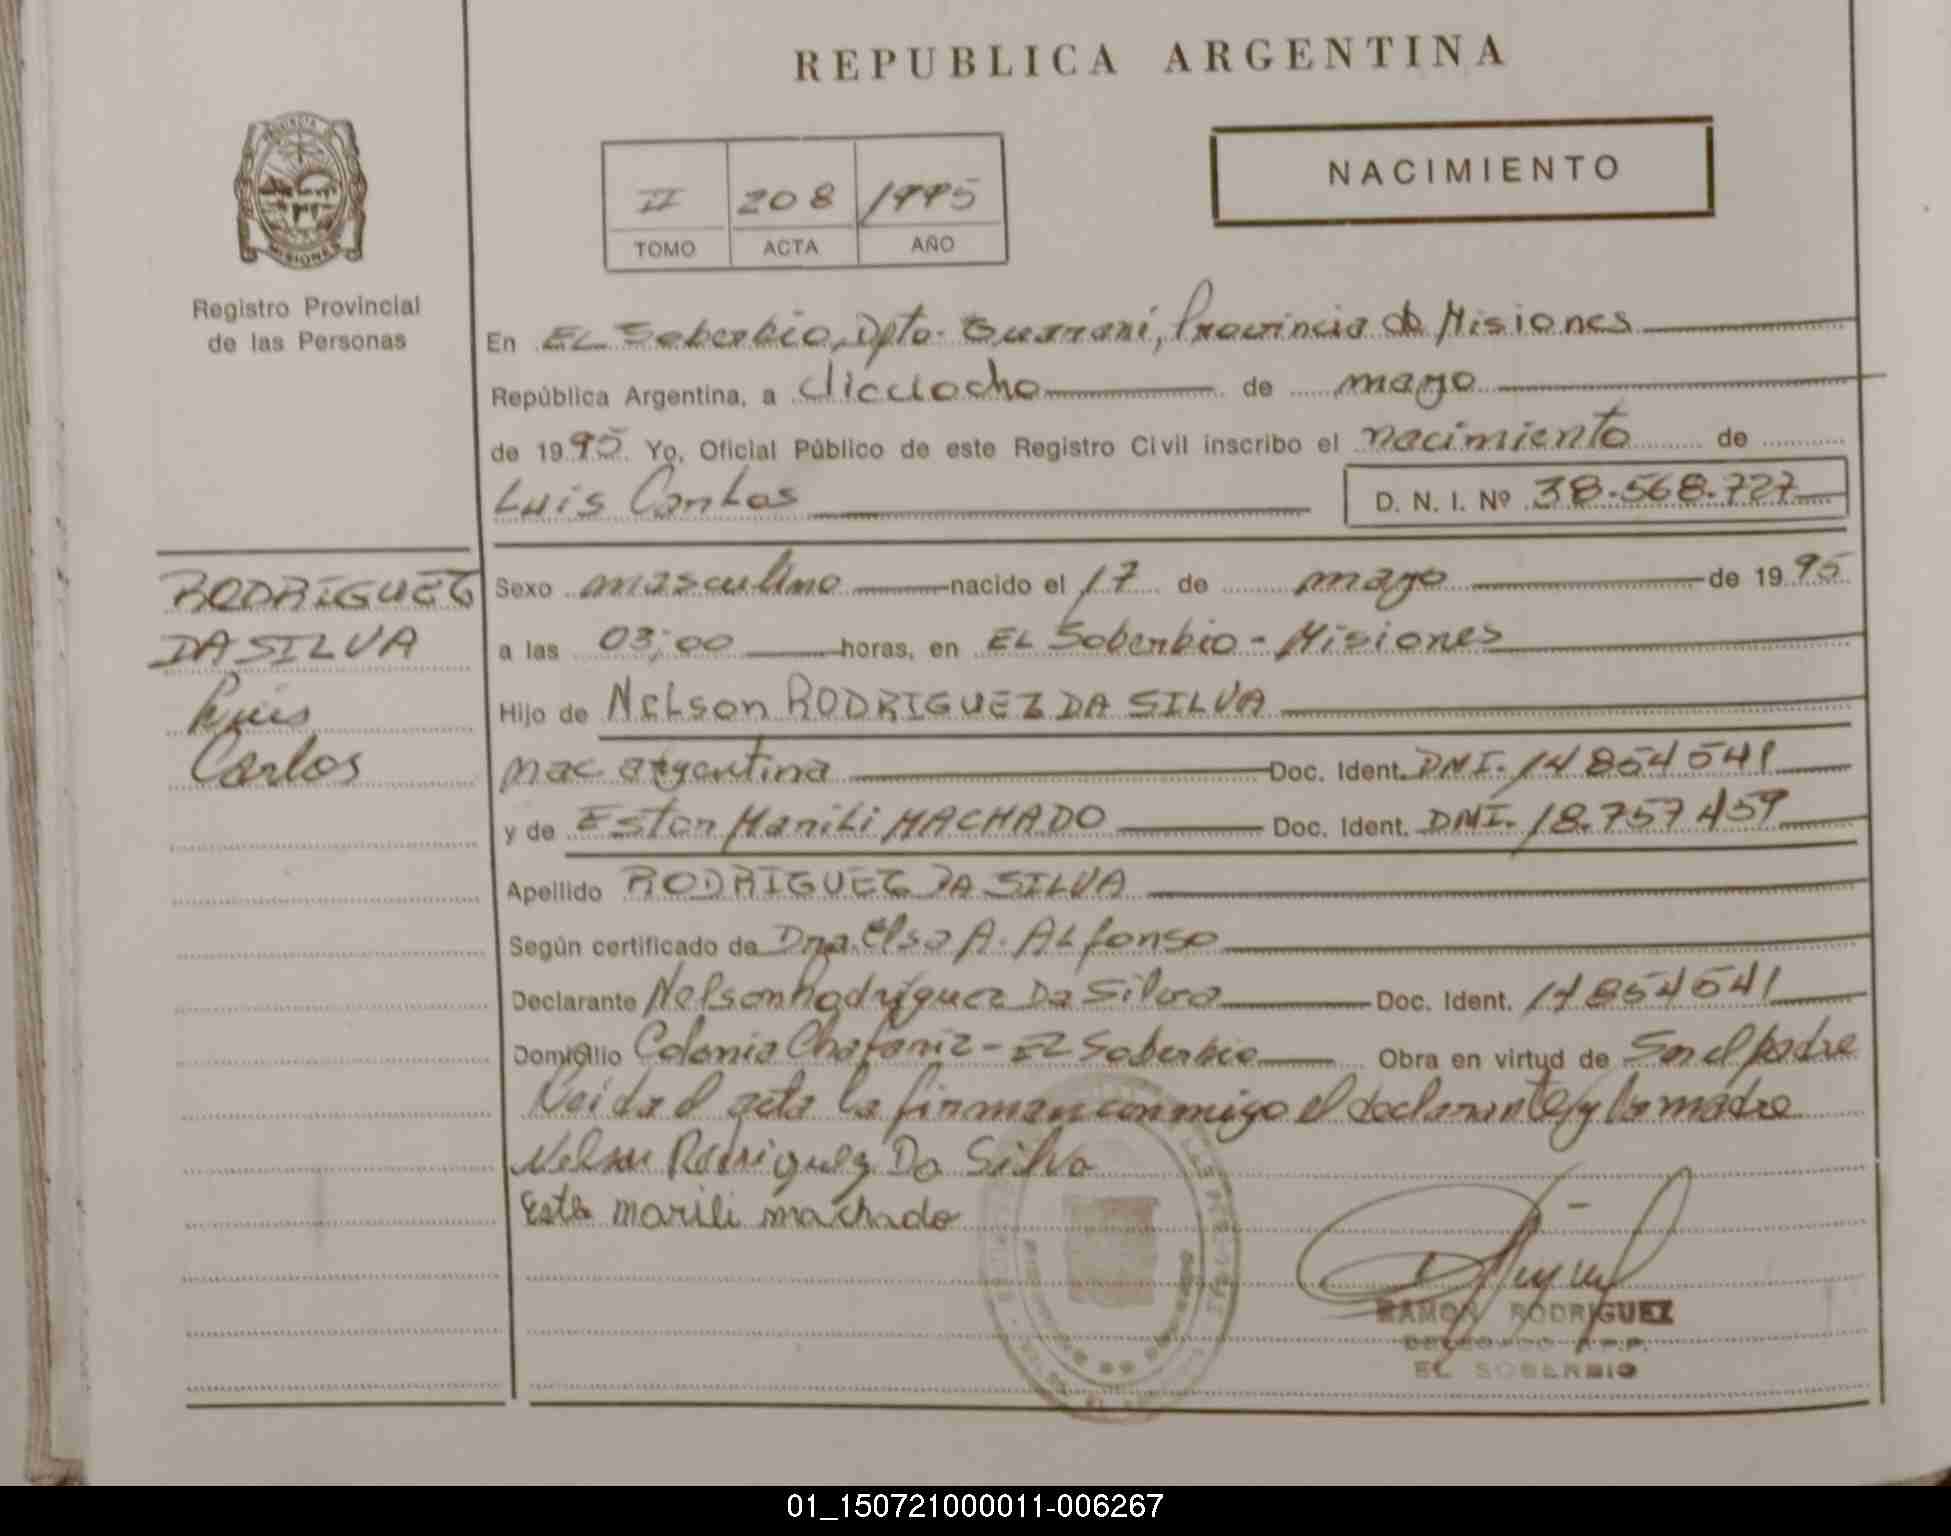 REPUBLICA ARGENTINA
NACIMIENTO
II 208 1995
TOMO ACTA AÑO
Registro Provincial
de las Personas
En EL Soberbio, Dpto. Guarani, Provincia de Misiones
República Argentina, a dieciocho de mayo
de 1995 Yo, Oficial Público de este Registro Civil inscribo el nacimiento de
Luis Carlos D. N. I. Nº 38.568.727
RODRIGUEZ
DA SILVA
Luis
Carlos
Sexo masculino nacido el 17 de mayo de 1995
a las 03;00 horas, en EL Soberbio - Misiones
Hijo de Nelson RODRIGUEZ DA SILVA
nac. argentina Doc. Ident. DNI. 14 854 541
y de Ester Marili MACHADO Doc. Ident. DNI. 18.757 459
Apellido RODRIGUEZ DA SILVA
Según certificado de Dra. Elsa A. Alfonso
Declarante Nelson Rodriguez Da Silva Doc. Ident. 14 854 541
Domicilio Colonia - EL Soberbio Obra en virtud de Ser el padre
Leida el acta la firman conmigo el declarante y la madre
Nelson Rodriguez Da Silva
Marili machado
RAMON RODRIGUEZ
DELEGADO R.P.P.
EL SOBERBIO
01_150721000011-006267